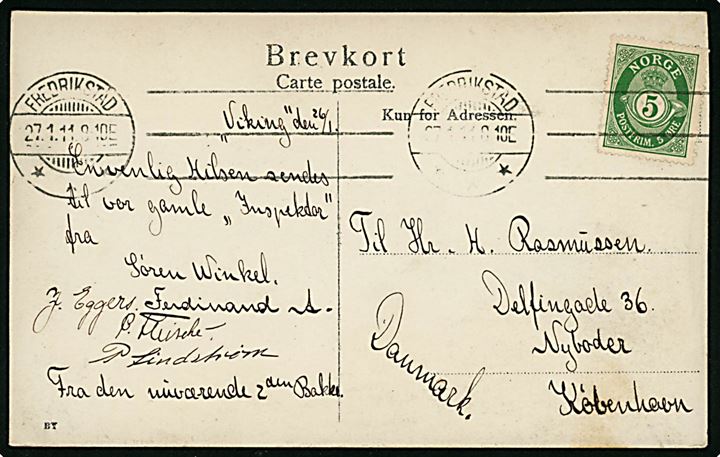 Brevkort
Carte postale.
Kun for Adressen.
FREDRIKSTAD
27.1.11.8-10E
FREDRIKSTAD
27.1.11.8-10E
NORGE
5
POSTFRIM. 5 ØRE
"Viking" den 26/1.
En venlig Hilsen sendes
til vor gamle "Inspektør"
fra
Søren Winkel.
J. Eggers. Ferdinand A.
P Lindstrøm
Fra den nuværende 2den Bakke.
Til Hr. H. Rasmussen.
Delfingade 36.
Nyboder
København
Danmark.
BT